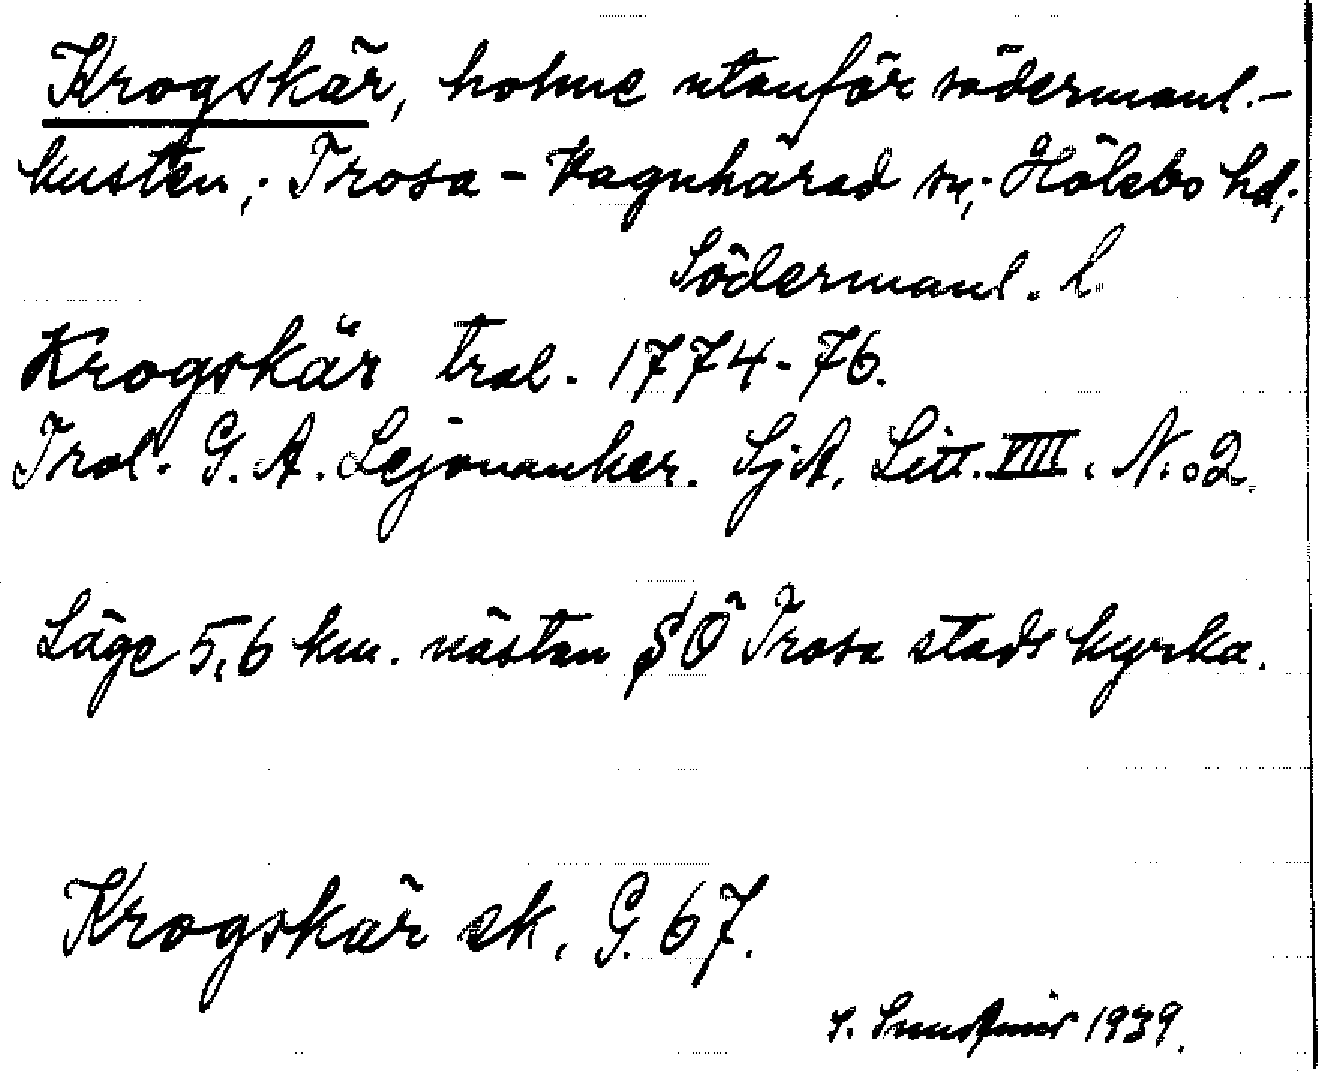 Krogskär, holme utanför södermanl.-
kusten; Trosa - Vagnhärad sn; Hölebo hd;
Södermanl. L
Krogskär trol. 1774-76.
Trol. G. A. Lejonanker. SjA. Litt. VIII. N:o 2.
Läge 5,6 km. nästan SÖ Trosa stads kyrka.
Krogskär ek. G. 67.
1939.